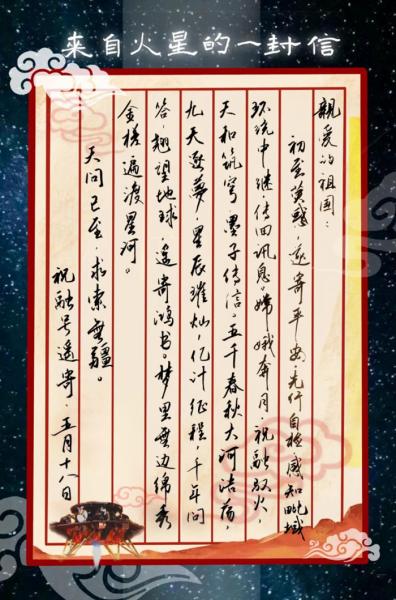 来自火星的一封信
親爱的祖国：
初至荧惑，遥寄平安。先行自检，感知毗域
环绕中继，传回讯息。嫦娥奔月，祝融驭火，
天和筑穹，墨子传信。五千春秋大河浩荡，
九天逐夢，星辰璀灿，亿计征程，千年问
答，翘望地球，遥寄鸿书。梦里無边绵秀
金槎遍渡星河。
天问已至，求索無疆。
祝融号遥寄·五月十八日